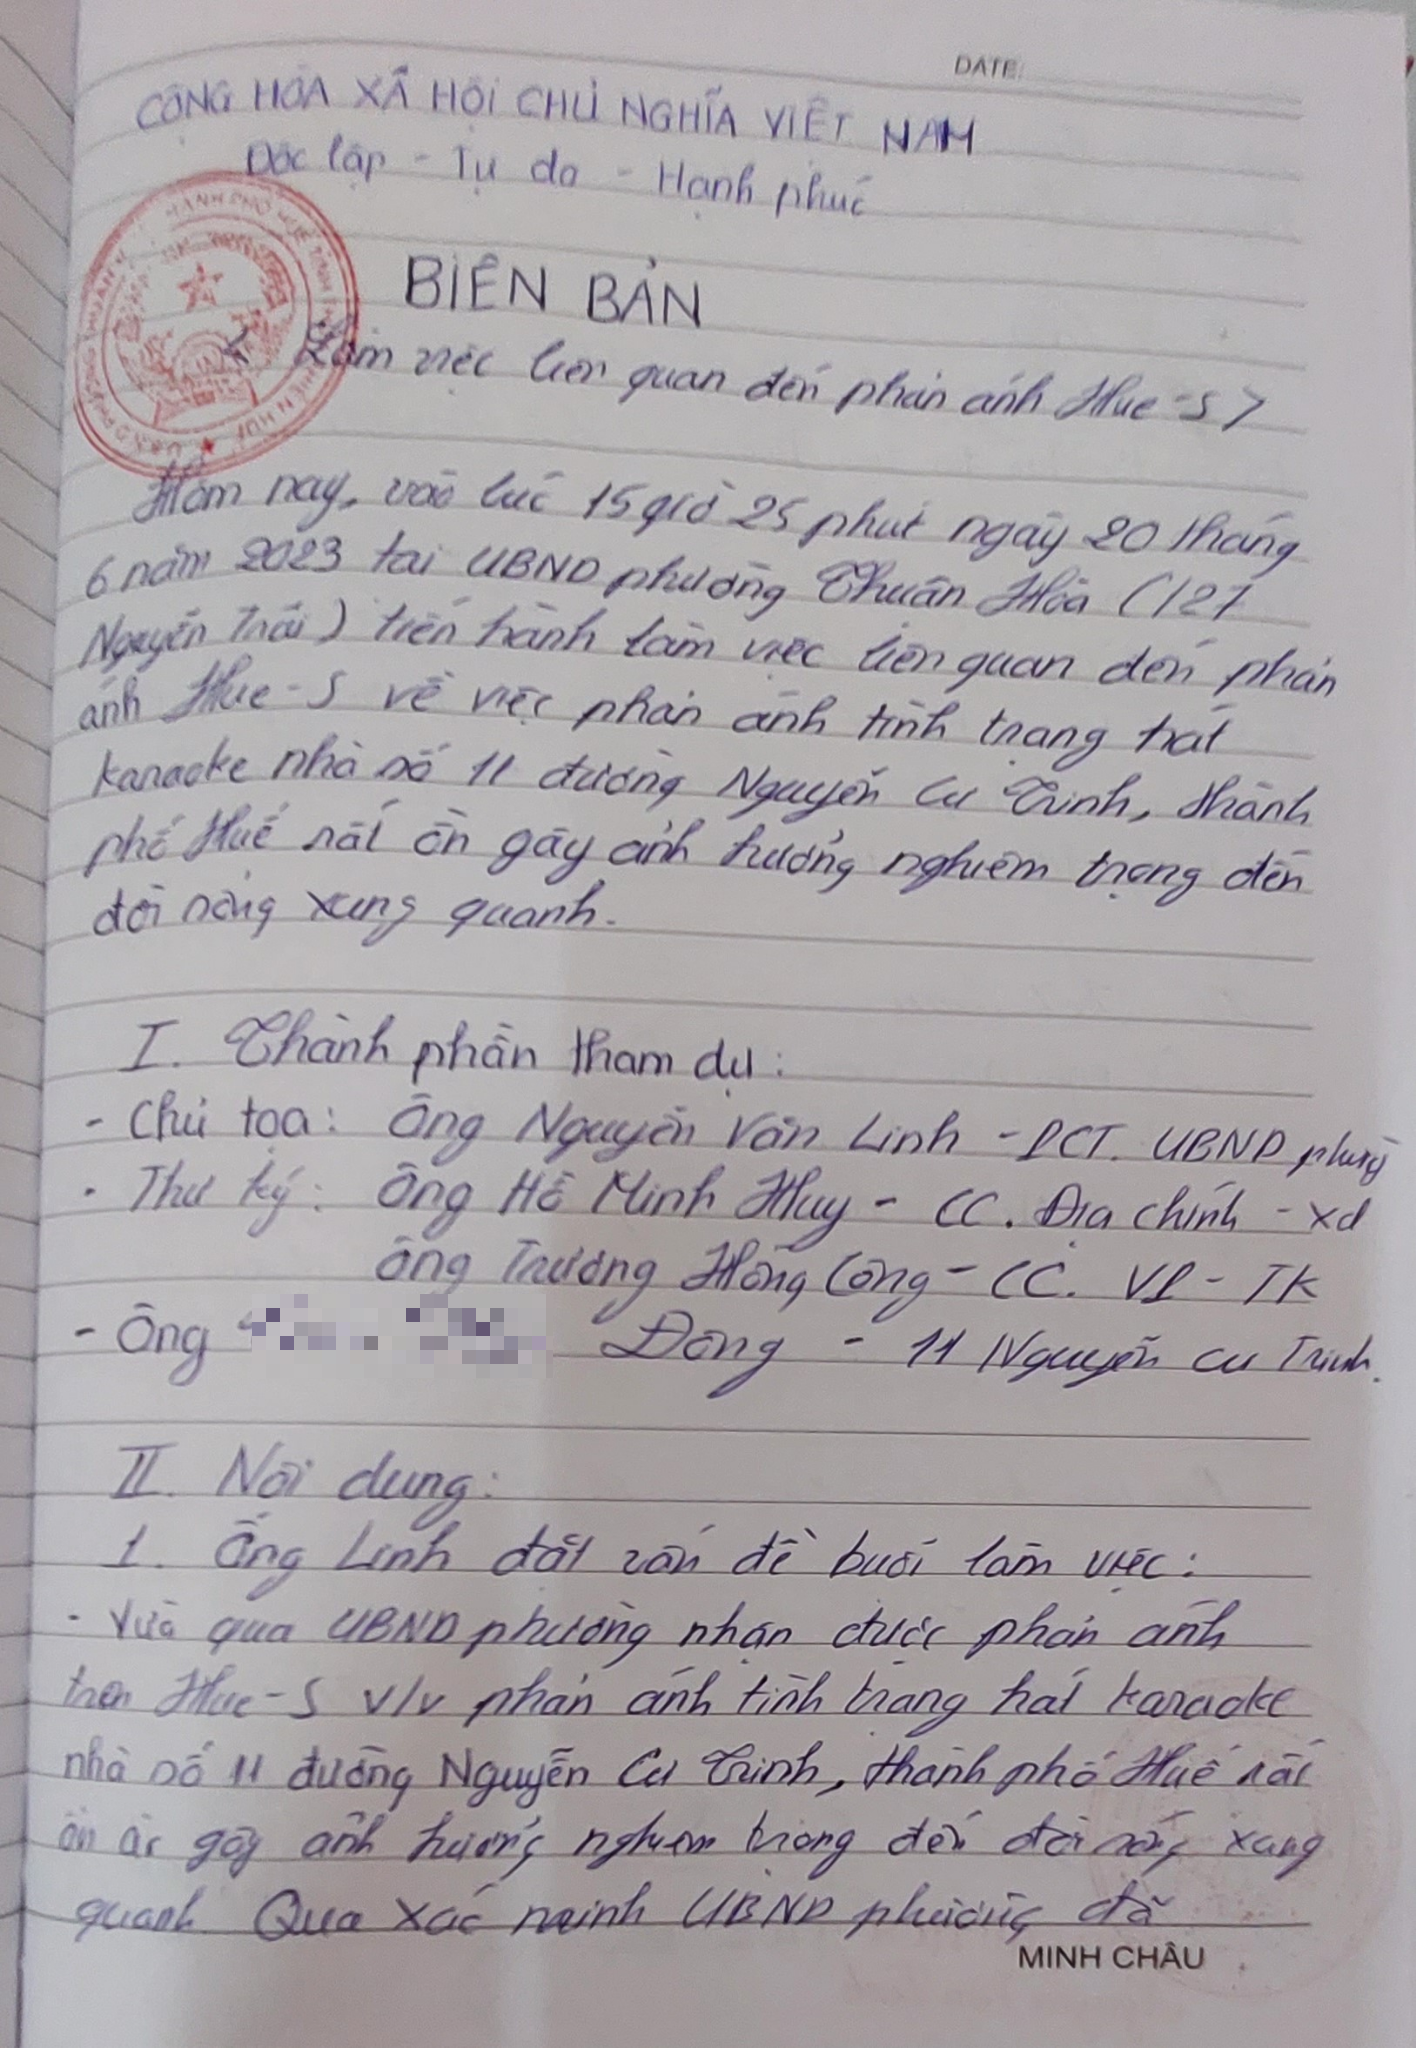 DATE:
CỘNG HÒA XÃ HỘI CHỦ NGHĨA VIỆT NAM
Độc lập - Tự do - Hạnh phúc
BIÊN BẢN
< Làm việc liên quan đến phản ánh Hue-S >
Hôm nay, vào lúc 15 giờ 25 phút ngày 20 tháng
6 năm 2023 tại UBND phường Thuận Hòa (127
Nguyễn Trãi) tiến hành làm việc liên quan đến phản
ánh Hue-S về việc phản ánh tình trạng hát
karaoke nhà số 11 đường Nguyễn Cư Trinh, thành
phố Huế rất ồn gây ảnh hưởng nghiêm trọng đến
đời sống xung quanh.
I. Thành phần tham dự:
- Chủ tọa: Ông Nguyễn Văn Linh - PCT. UBND phường
- Thư ký: Ông Hồ Minh Huy - CC. Địa chính - XD
Ông Trương Hồng Công - CC. VP - TK
- Ông Đông - 11 Nguyễn Cư Trinh.
II. Nội dung:
1. Ông Linh đặt vấn đề buổi làm việc:
- Vừa qua UBND phường nhận được phản ánh
trên Hue-S v/v phản ánh tình trạng hát karaoke
nhà số 11 đường Nguyễn Cư Trinh, thành phố Huế rất
ồn ào gây ảnh hưởng nghiêm trọng đến đời sống xung
quanh. Qua xác minh UBND phường đã
MINH CHÂU